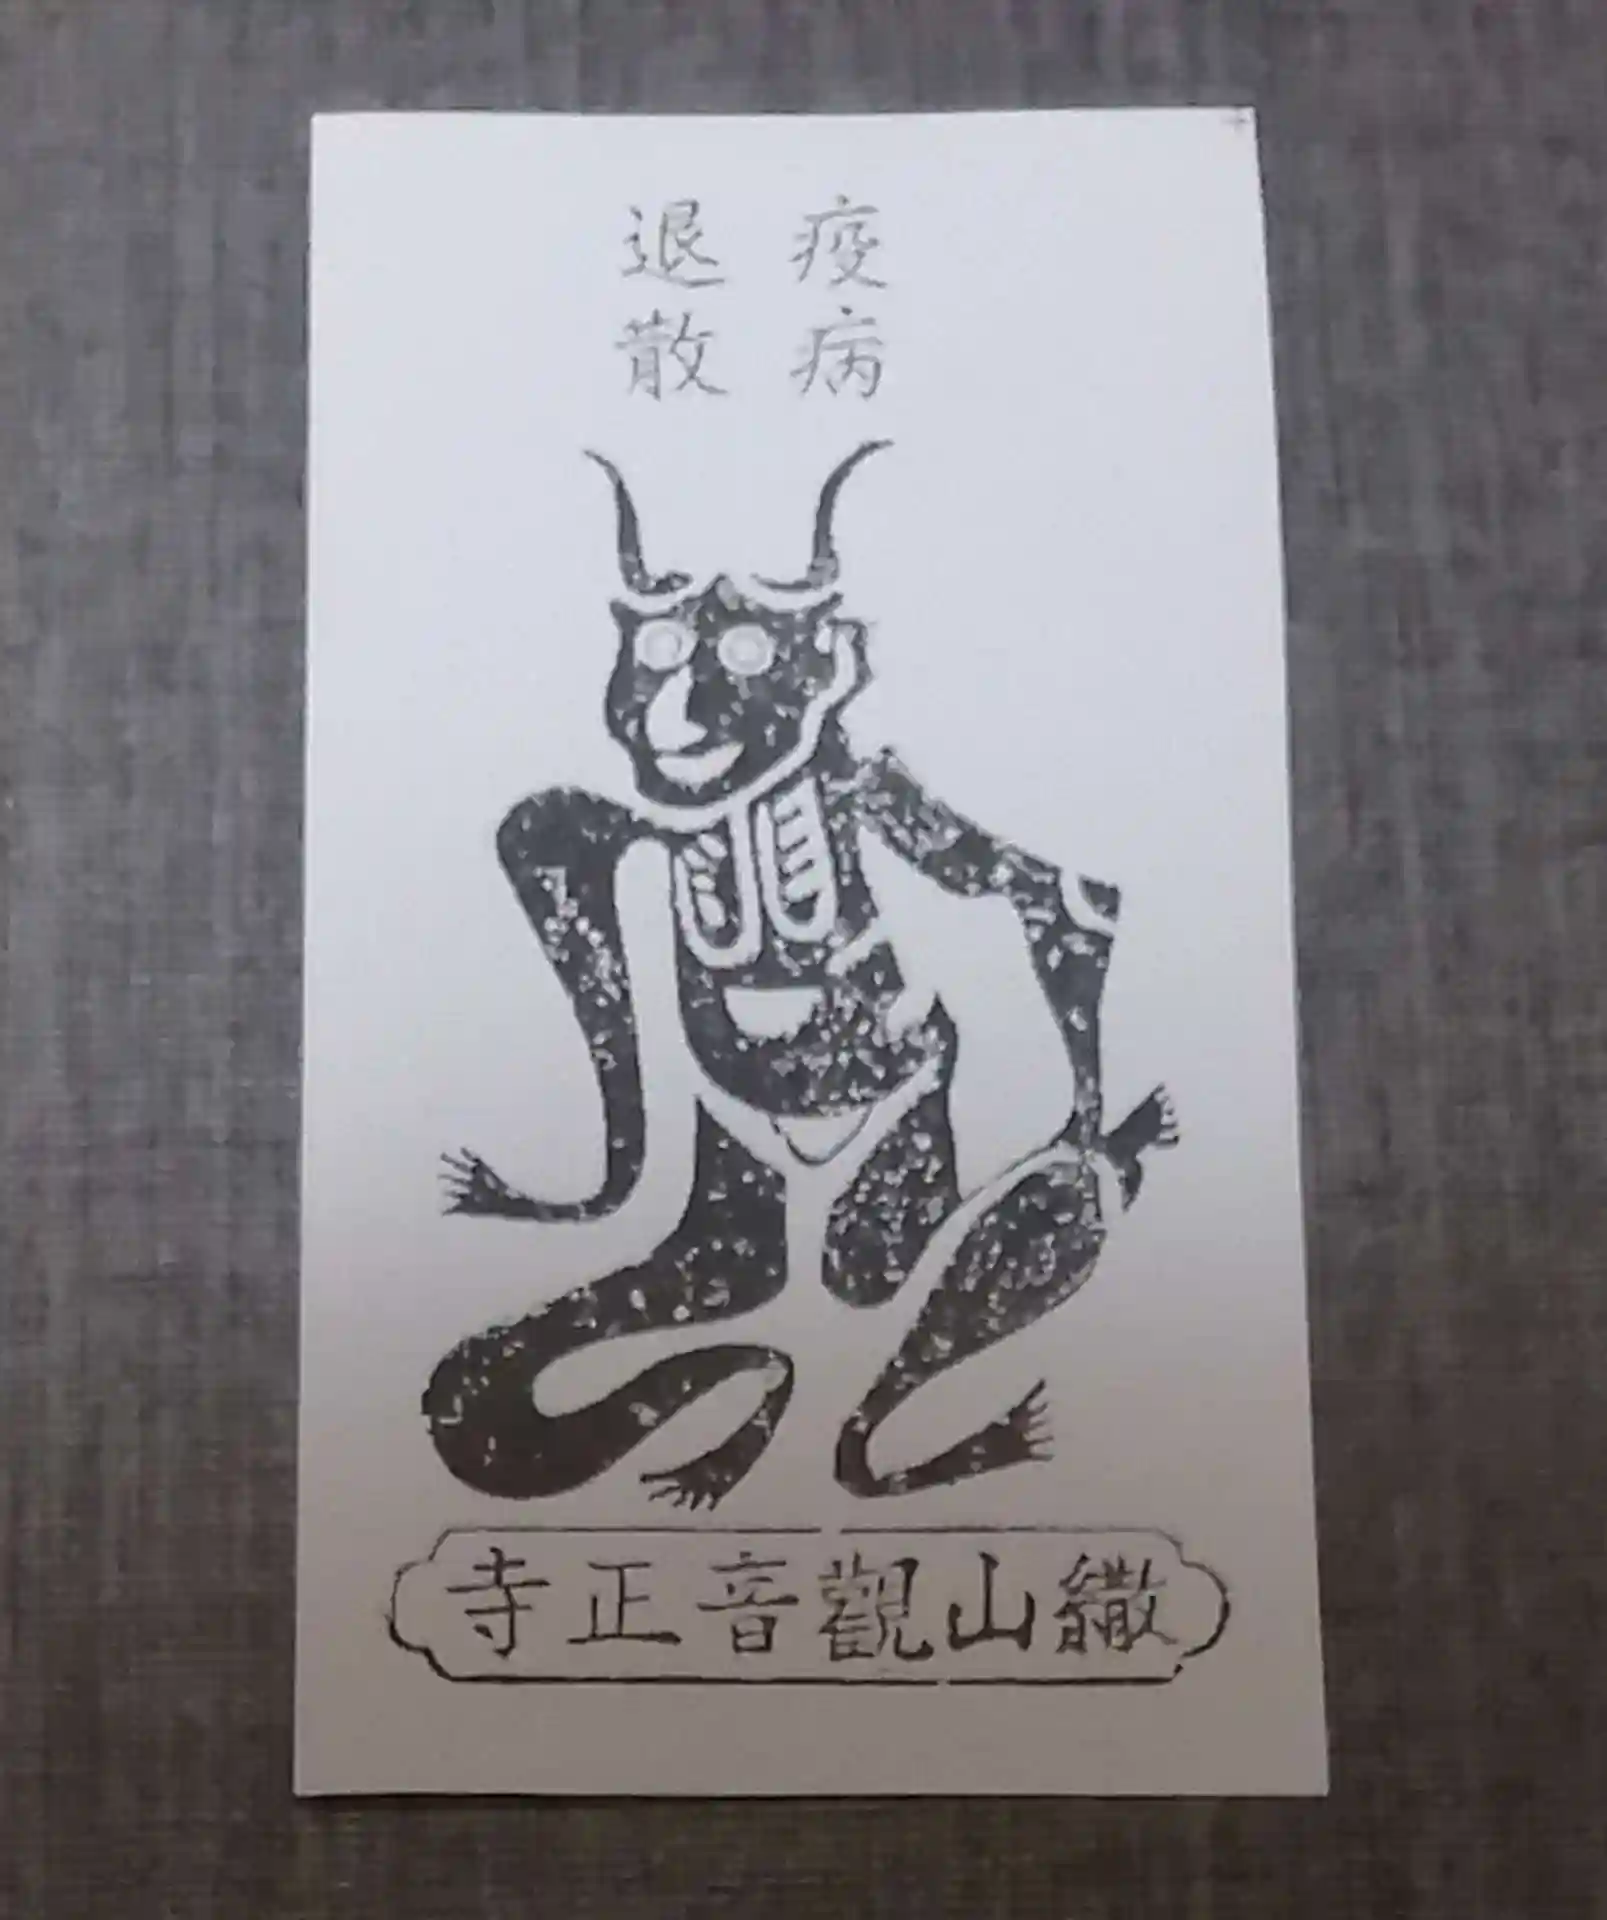 疫病
退散
繖山觀音正寺